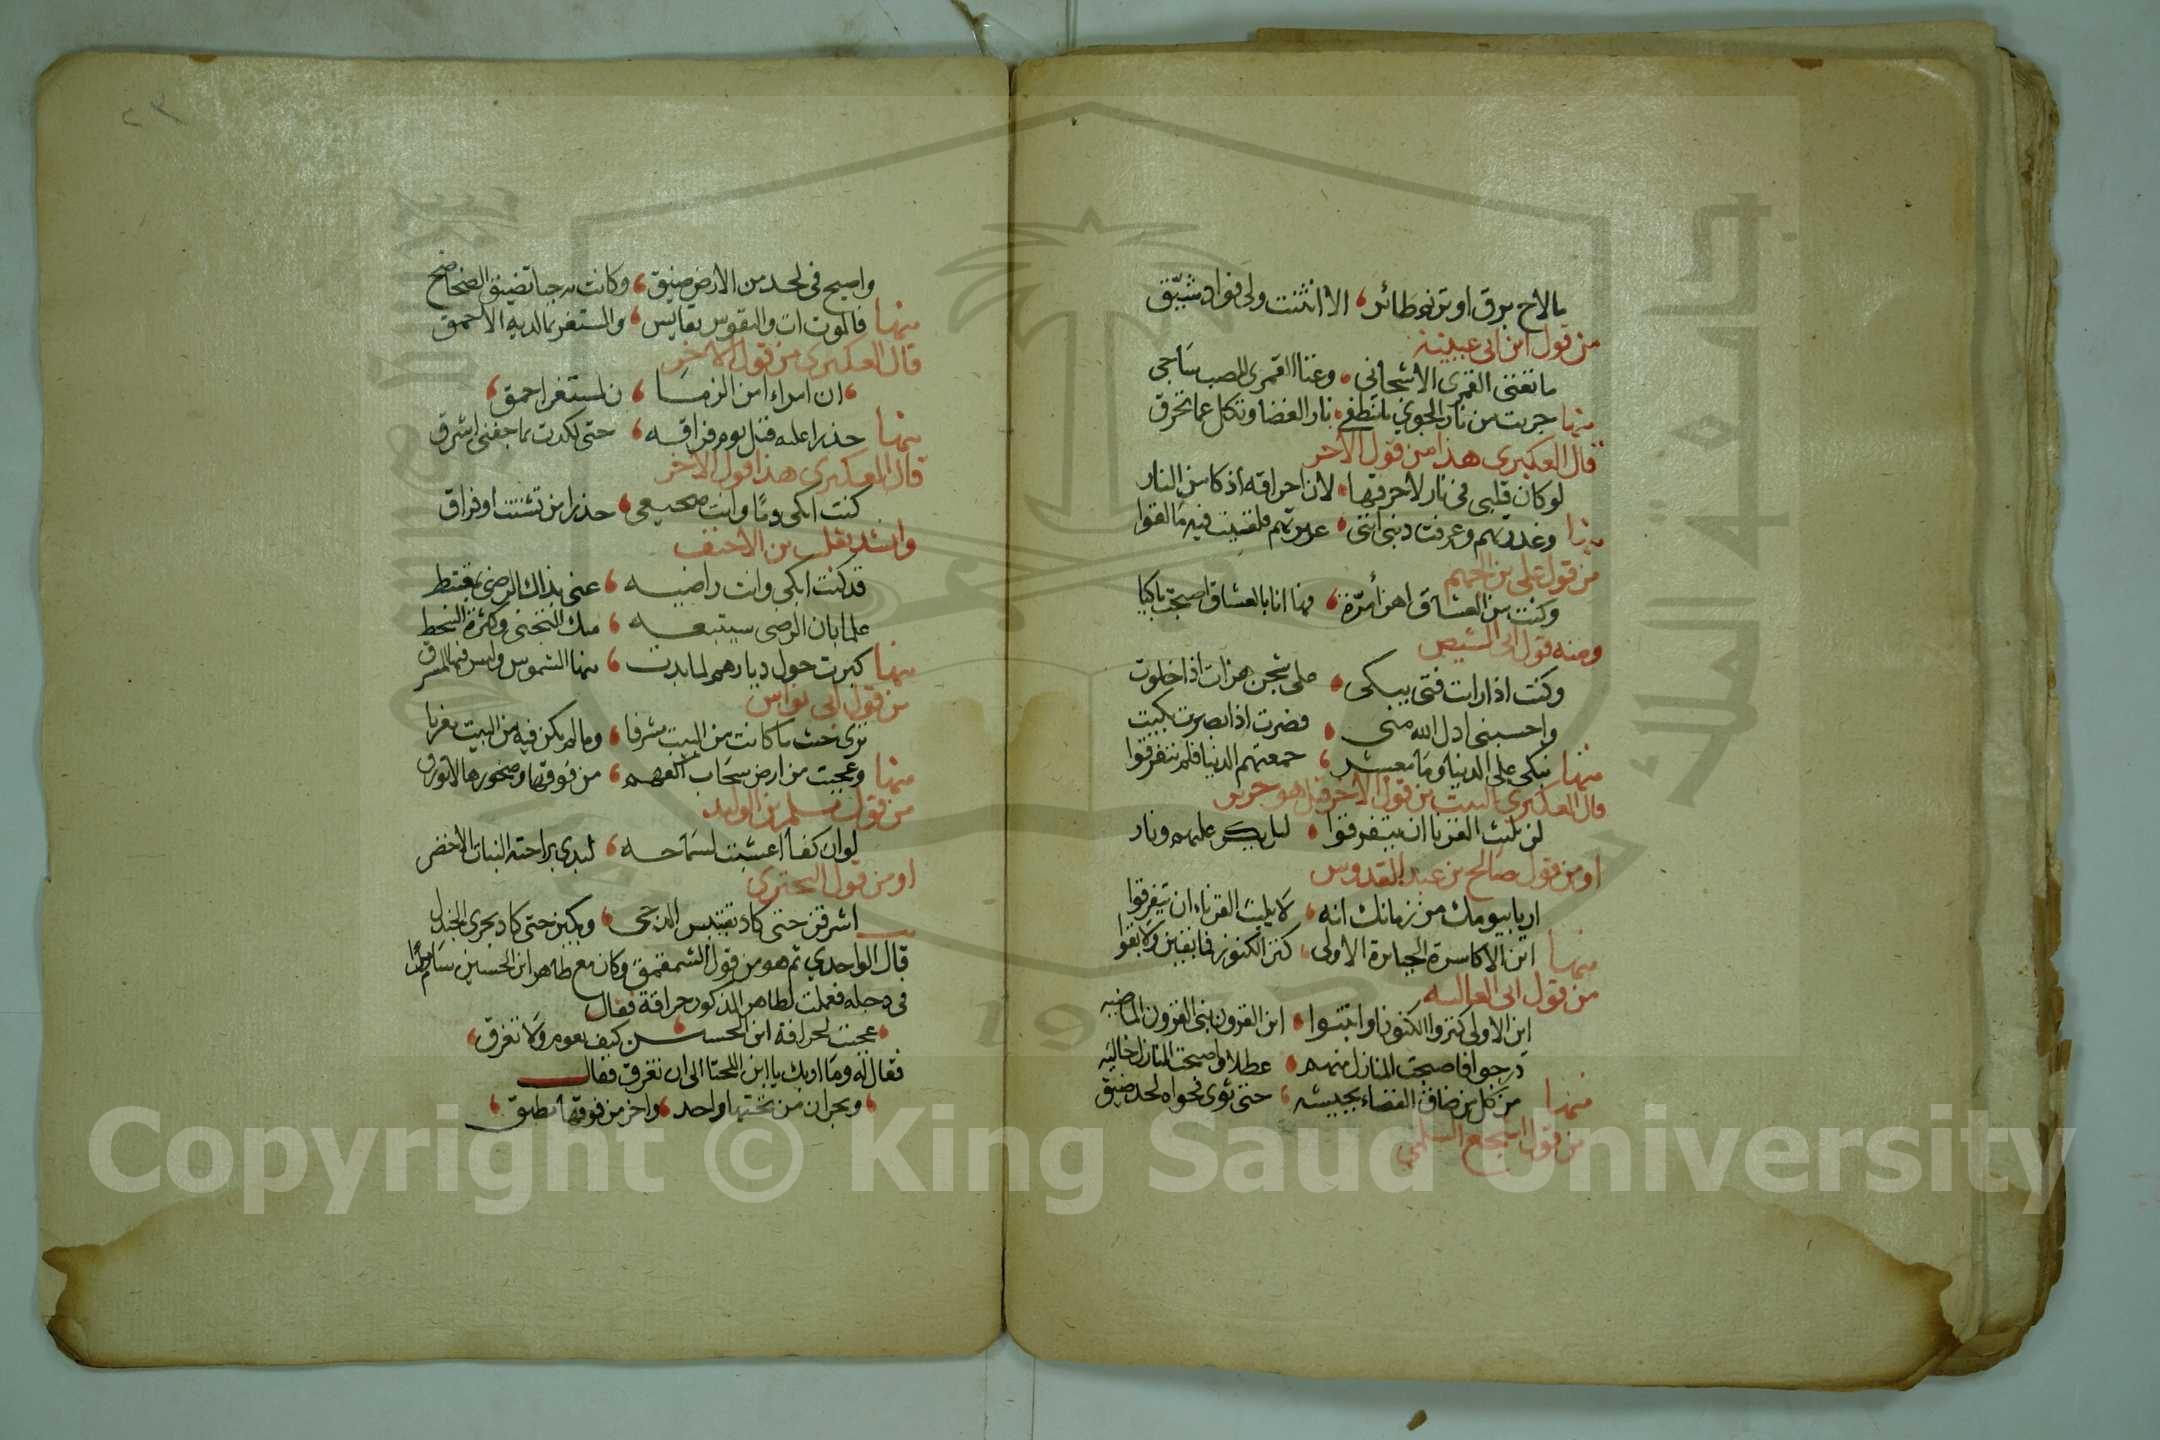 مالاح برق اوترنم طائر الا انثنت ولى فؤاد شيّق
من قول ابن ابى عيينة
ماتغنى القمرى الاشجانى وغناء القمرى للصب شاجى
منها جربت من نار الجوى ما تنطفى نار الغضا وتكل عما تحرق
قال العكبرى هذا من قول الاخر
لو كان قلبى فى نار لاحرقها لان احراقه اذكا من النار
منها وعذرتهم وعرفت ذنبى اننى عيرتهم فلقيت فيه مالقوا
من قول على بن الجهم
وكنت بالعشاق اهزأ مرّة فها انا بالعشاق اصبحت باكيا
ومنه قول ابى الشيص
وكنت اذا رايت فتى يبكى على شجن هزات اذا خلوت
واحسبنى ادل الله منى فصرت اذا بصرت به بكيت
منها نبكى على الدنيا وما من معشر جمعتهم الدنيا فلم يتفرقوا
قال العكبرى البيت من قول الاخر قيل هو جرير
لن يلبث القرنا ان يتفرقوا ليل يكر عليهم ونهار
او من قول صالح بن عبد القدوس
ارباب يومك من زمانك انه لا يلبث القرناء ان يتفرقوا
منها اين الاكاسرة الجبابرة الاولى كنزوا الكنوز فما بقين ولا بقوا
من قول ابى العتاهية
اين الاولى كنزوا الكنوز وابتنوا اين القرون بنى القرون الماضيه
درجوا فاصبحت المنازل منهم عطلا واصبحت المنازل خاليه
منها من كل من ضاق الفضاء بجيشه حتى ثوى فحواه لحد ضيق
من قول اشجع السلمى
واصبح فى لحد من الارض ضيق وكانت به حيا تضيق الصحاصح
منها فالموت ات والنفوس نفايس والمستغر بما لديه الاحمق
قال العكبرى من قول الاخر
ان امراء امن الزمان لمستغر احمق
منها حذرا عليه قبل يوم فراقه حتى لكدت بماء جفنى اشرق
قال العكبرى هذا قول الاخر
كنت ابكى دمًا وانت ضجيعى حذرا من تشتت وفراق
وانشد ثعلب بن الاحنف
قد كنت ابكى وانت راضيه عنى بذاك الرضى مغتبط
علما بان الرضى سيتبعه منك التجنى وكثرة السخط
منها كبرت حول ديارهم لما بدت منها الشموس وليس فيها المشرق
من قول ابى نواس
ترى حيث ما كانت من البيت مشرقا ومالم تكن فيه من البيت مغربا
منها وعجبت من ارض سحاب اكفهم من فوقها وصخورها لا تورق
من قول مسلم بن الوليد
لو ان كفا اعشبت لسماحه لبدى براحته النبات الاخضر
او من قول البحترى
اشرقن حتى كاد يقتبس الدجى وبكين حتى كاد يجرى الجندل
قال الواحدي ثم هو من قول الشمقمق وكان مع طاهر ابن الحسين
فى دجله فعملت لطاهر المذكور حراقة فقال
عجبت لحراقة ابن الحسين كيف تعوم ولا تغرق
فقال له وما اربك يا ابن اللخنا الى ان تغرق فقال
وبحران من تحتها واحد واخر من فوقها مطبق
Copyright © King Saud University